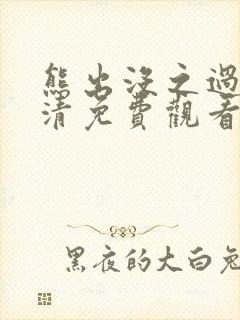 熊出沒之過
清免費觀看
黑夜的大白兔